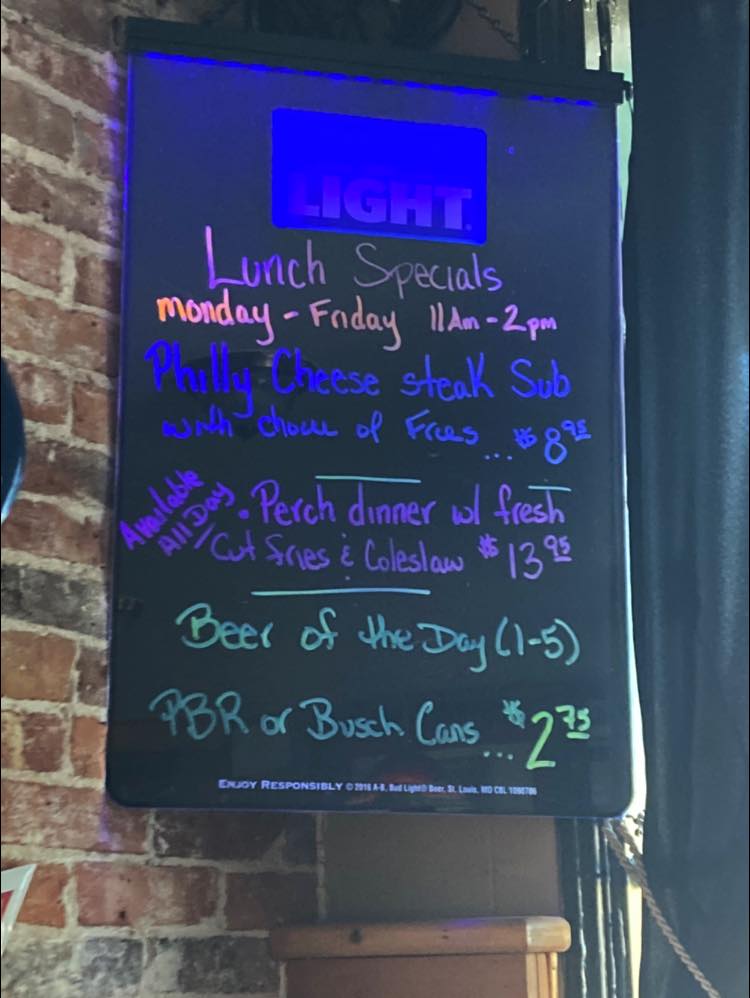 LIGHT
Lunch Specials
Monday - Friday 11Am - 2pm
Philly Cheese steak Sub
with choice of Fries ... $8.95
Available All Day • Perch dinner w/ fresh
/Cut fries & Coleslaw $13.95
Beer of the Day (1-5)
PBR or Busch Cans ... $2.75
ENJOY RESPONSIBLY © 2016 A-B, Bud Light® Beer, St. Louis, MO CBL 1090786